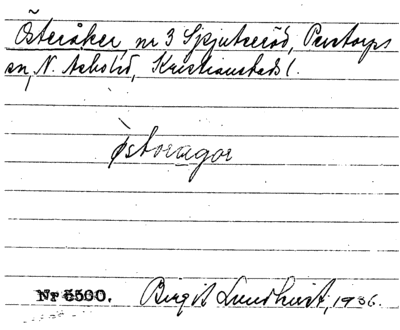 Österåker, nr 3 Spjutseröd, Perstorps
sn, N. Åsbo hd, Kristianstads l.
østoragor
Nr 5500. Birgit Lundqvist, 1936.